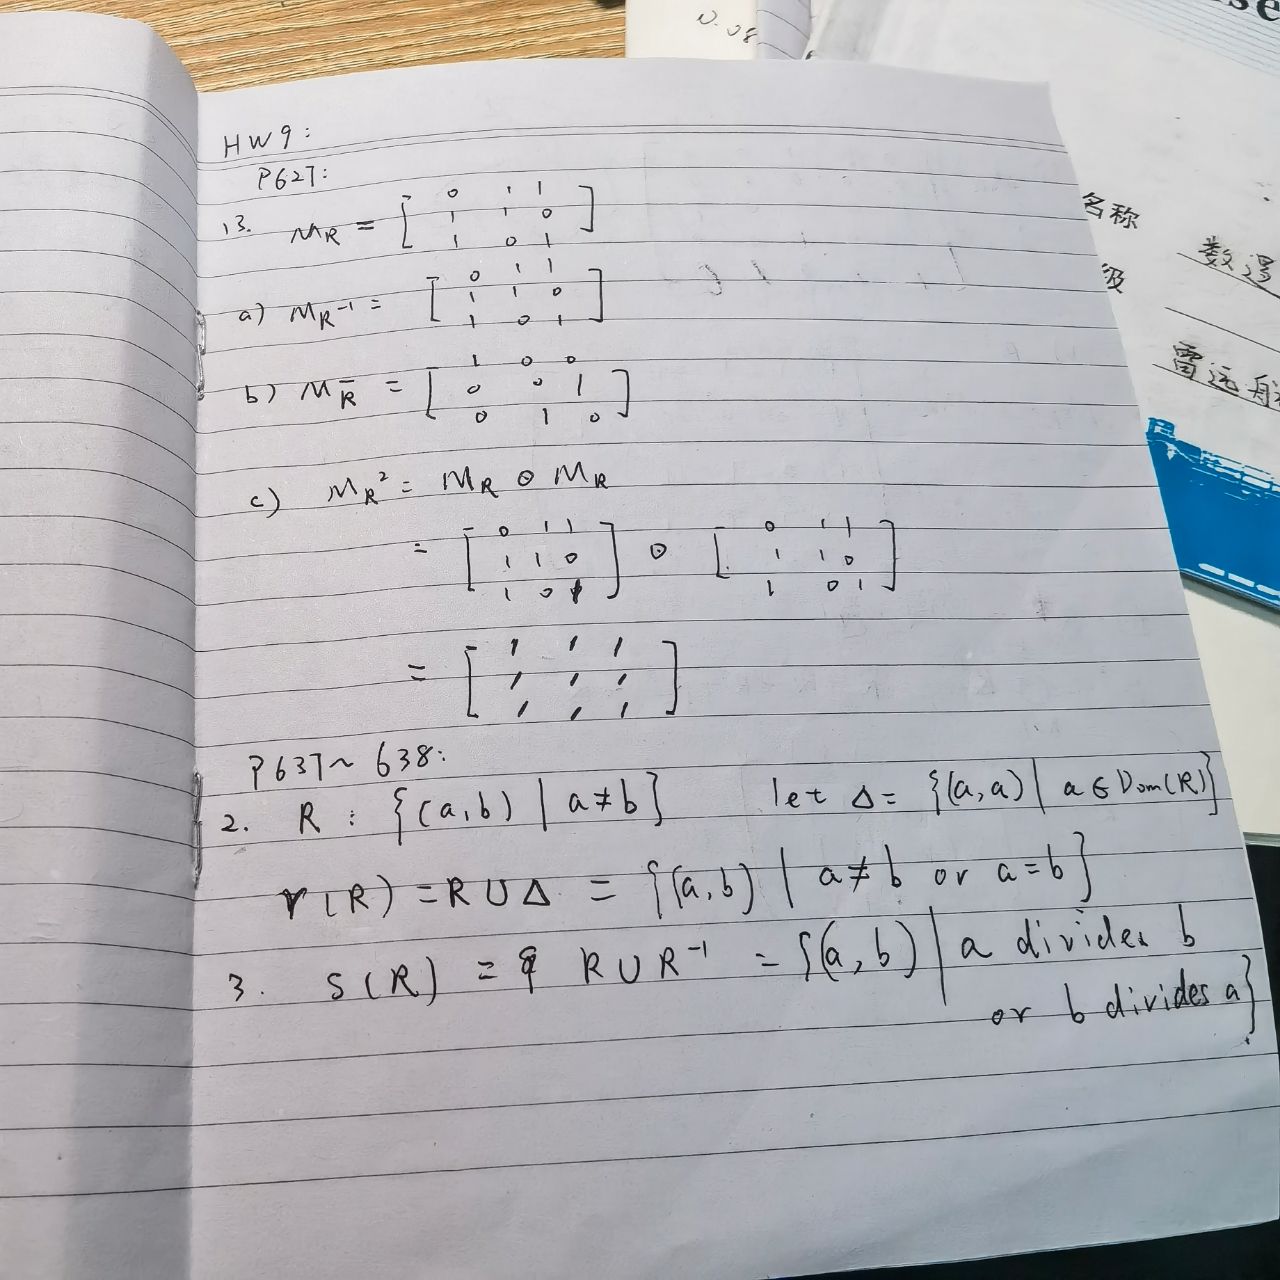 HW9:
P627:
13. MR = [ 0 1 1
1 1 0
1 0 1 ]
a) MR⁻¹ = [ 0 1 1
1 1 0
1 0 1 ]
b) MR̅ = [ 1 0 0
0 0 1
0 1 0 ]
c) MR² = MR ⊙ MR
= [ 0 1 1
1 1 0
1 0 1 ] ⊙ [ 0 1 1
1 1 0
1 0 1 ]
= [ 1 1 1
1 1 1
1 1 1 ]
P637~638:
2. R : {(a,b) | a≠b} let Δ= {(a,a) | a∈Dom(R)}
r(R) = R∪Δ = {(a,b) | a≠b or a=b}
3. S(R) = R∪R⁻¹ = {(a,b) | a divides b
or b divides a}
名称
级
数逻
雷远航